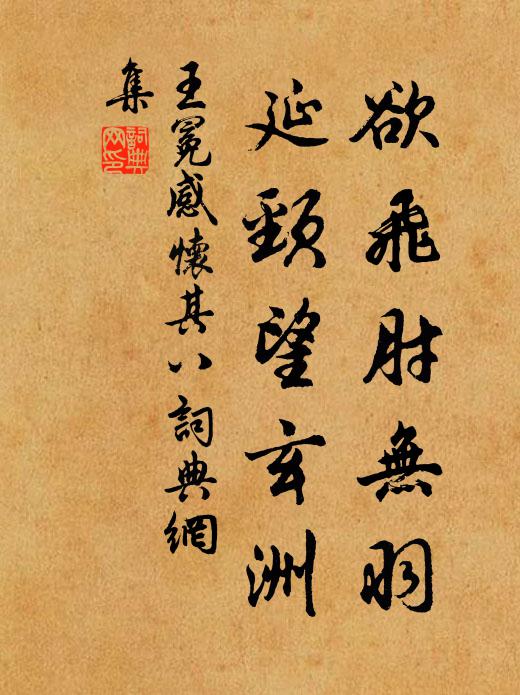 欲飛肘無羽
延頸望玄洲
王冕感懷其八詞典網
集
詞典網印